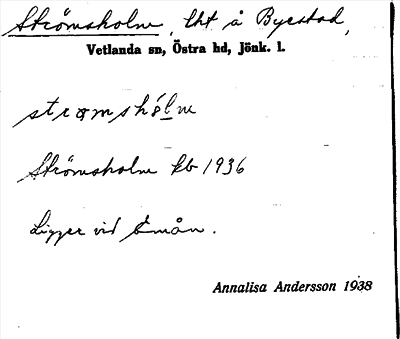 Strömsholm, lht å Byestad,
Vetlanda sn, Östra hd, Jönk. l.
Strömsholm kb 1936
Ligger vid Emån.
Annalisa Andersson 1938